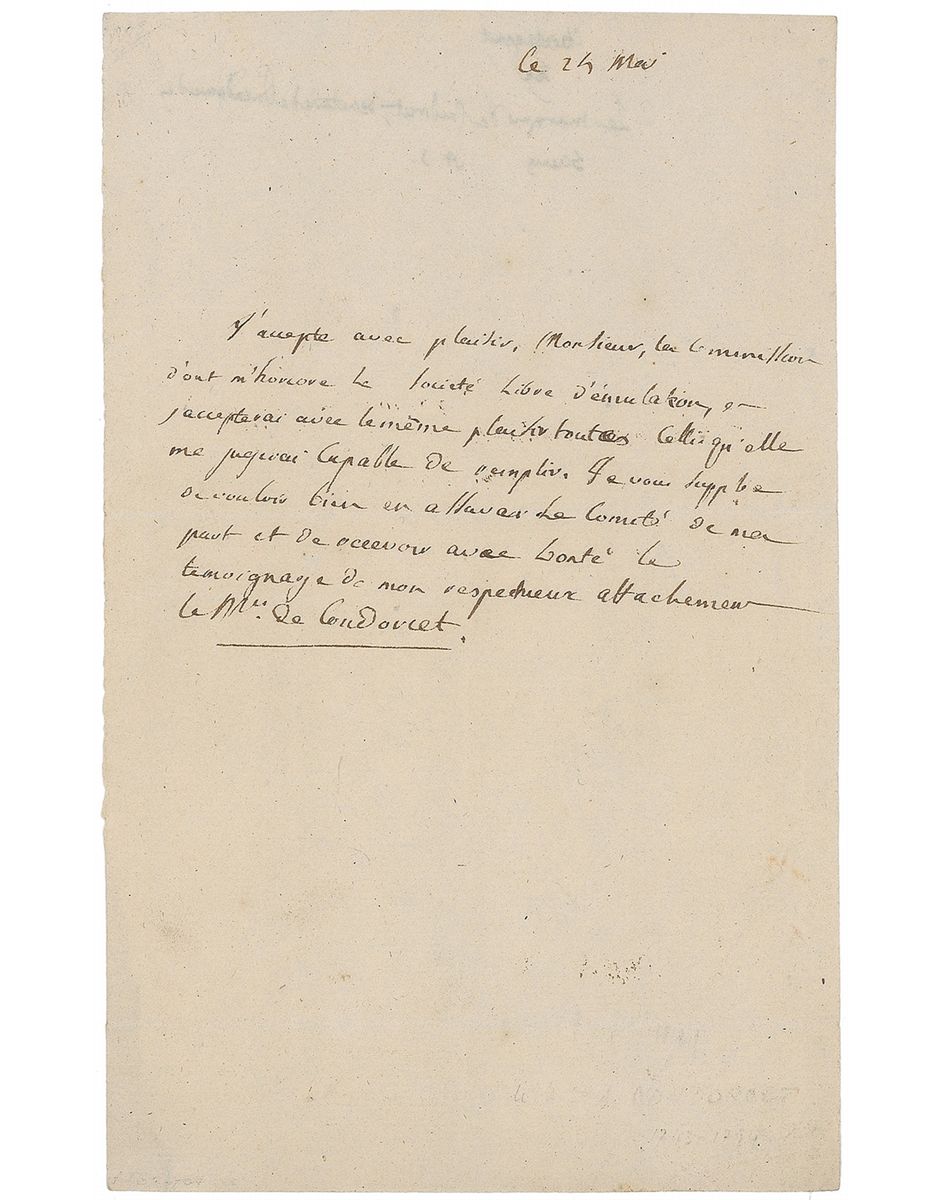 Ce 24 Mai
J'accepte avec plaisir, Monsieur, la Commission
d'ont m'honore la Societé libre d'émulation, et
j'accepterai avec le même plaisir toutes Celles qu'elle
me jugerai Capable de remplir. Je vous supplie
de vouloir bien en assurer le Comité de ma
part et de recevoir avec bonté le
temoignage de mon respectueux attachement
le Mis. de Condorcet.